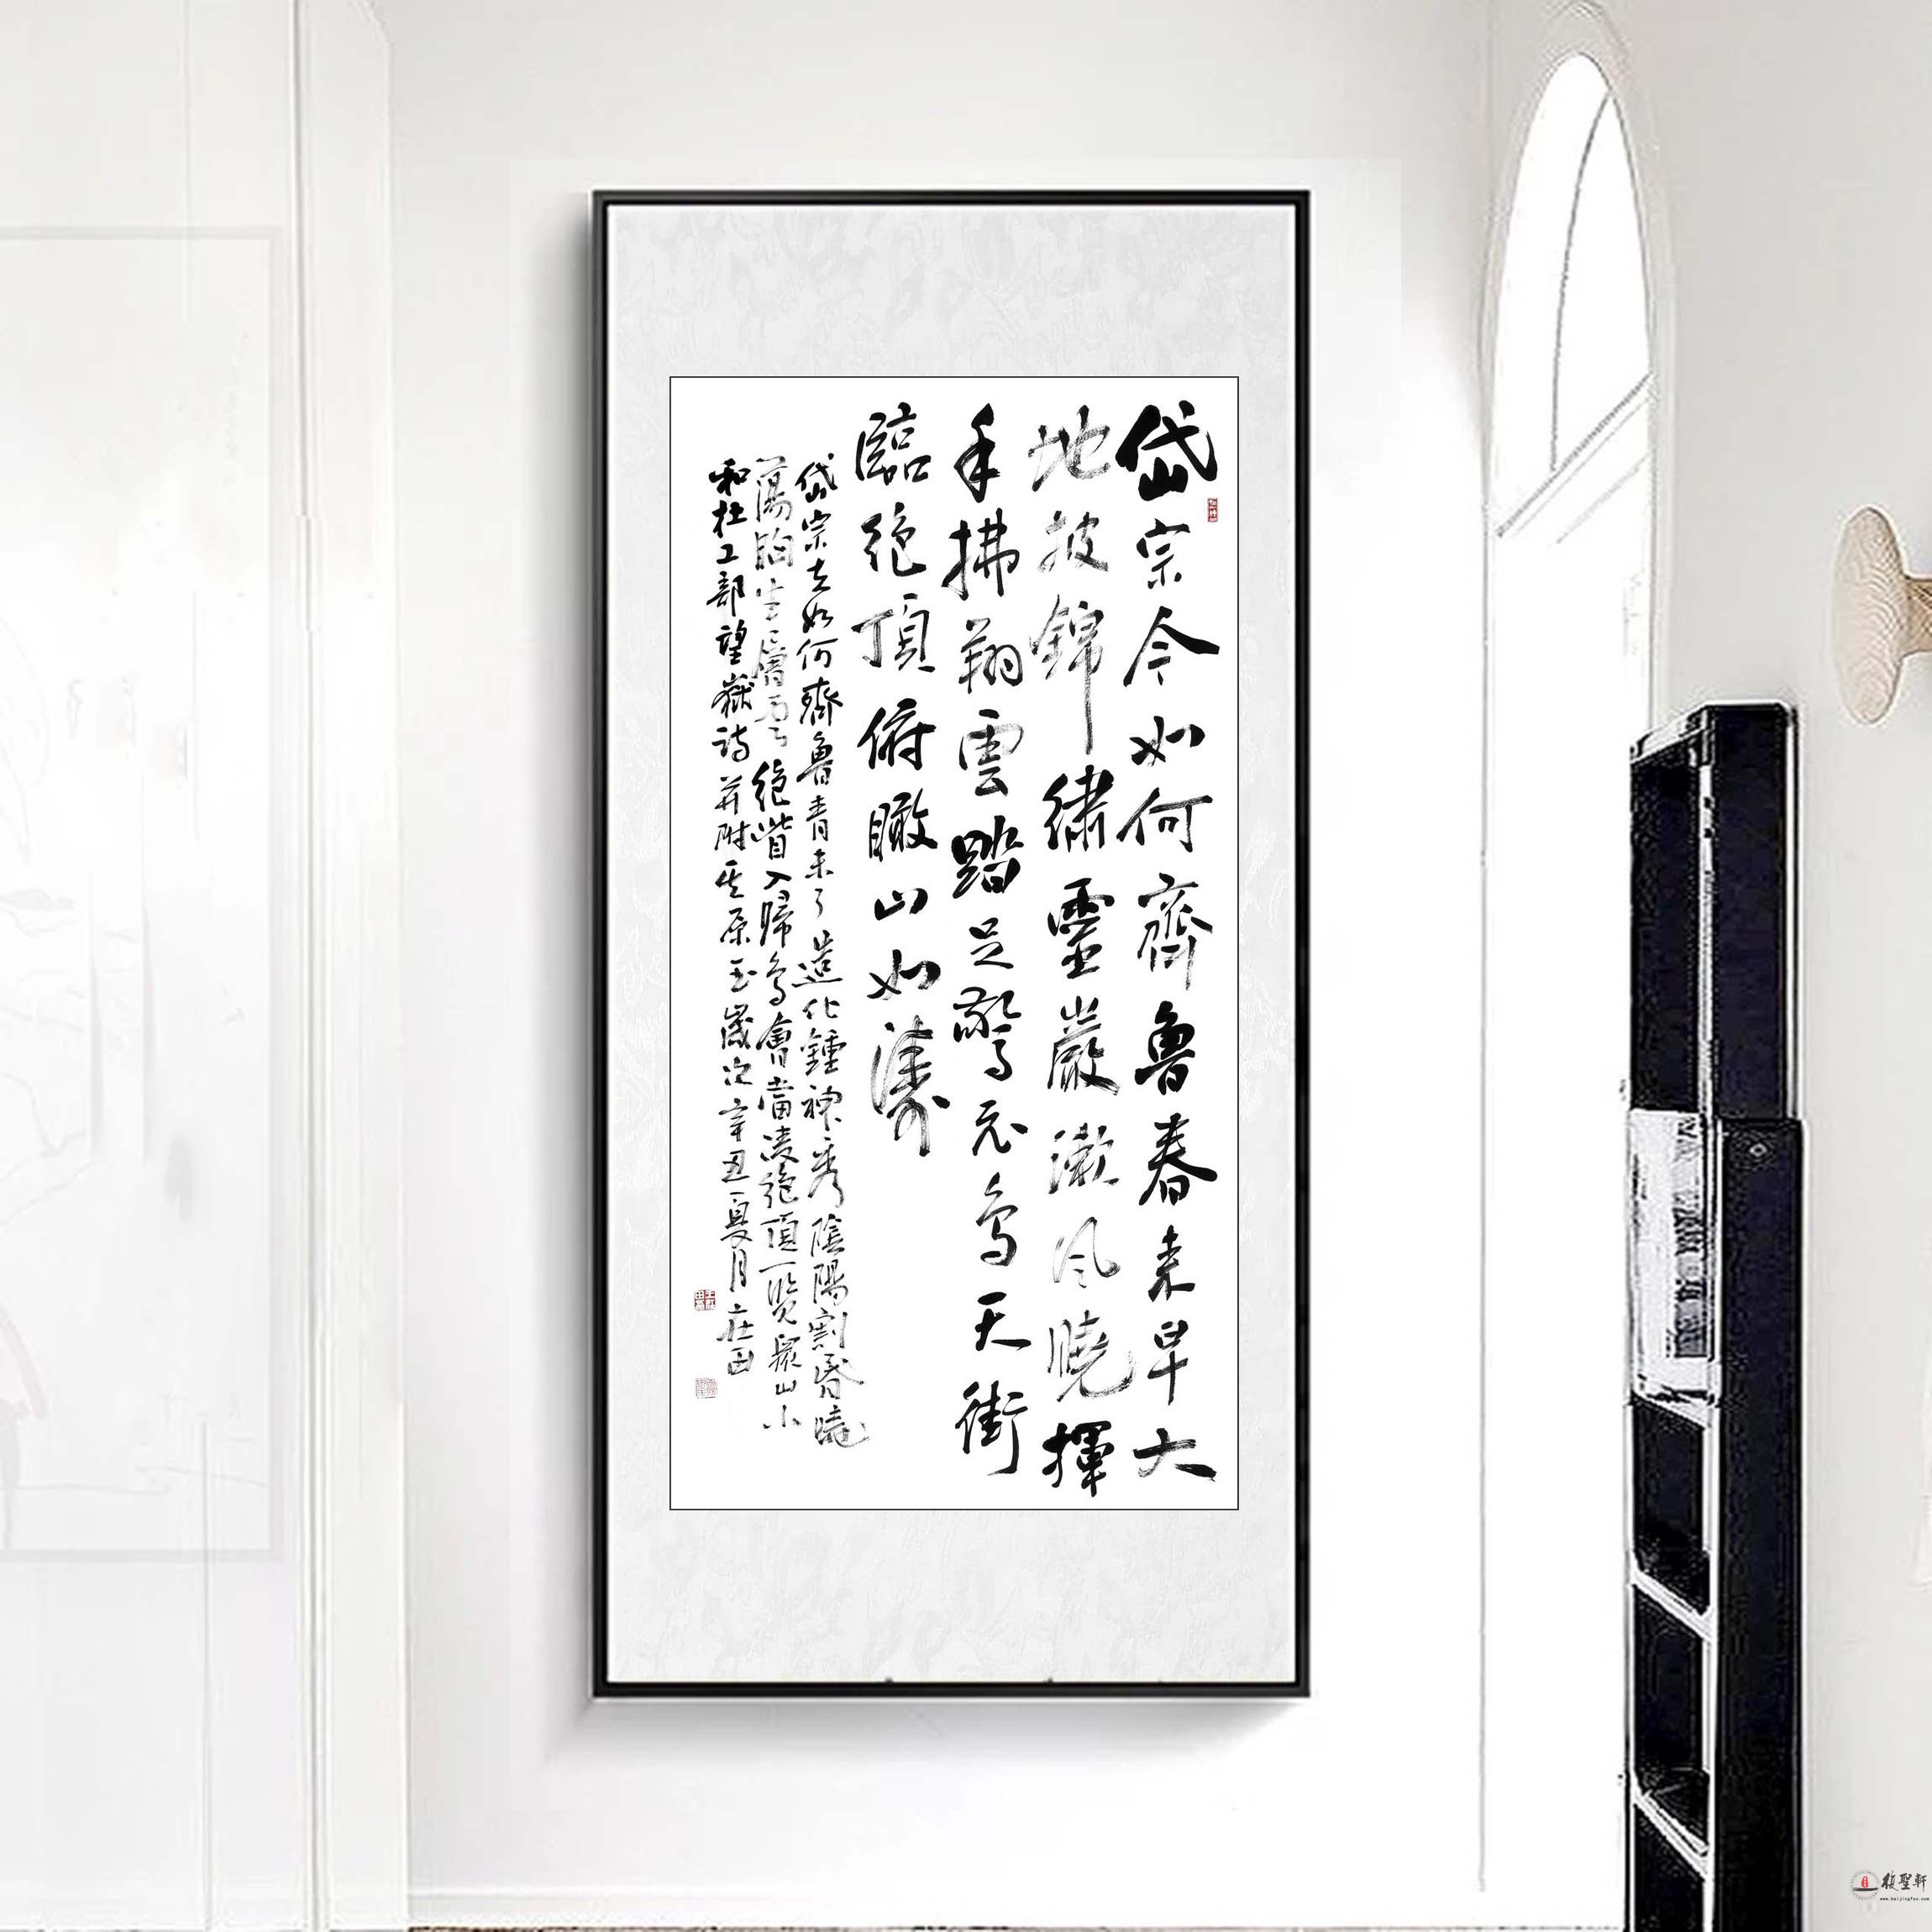 岱宗今如何齊魯春来早大
地披錦繡靈巖漱風曉揮
手拂翔雲踏足驚鳥天街
臨絕頂俯瞰山如濤
岱宗夫如何齊魯青未了造化鍾神秀陰陽割昏曉
蕩胸生層雲絕眥入歸鳥會當凌絕頂一覽眾山小
和杜工部望嶽詩并附其原玉歲次辛丑夏月
聖軒
www.beijingfsx.com